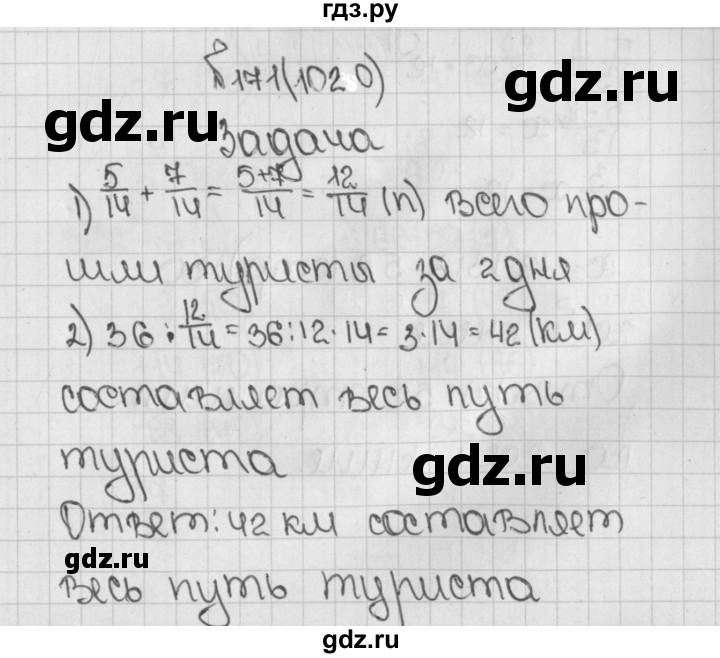 гдз.ру
№171(1020)
gdz.ru
gdz.ru
Задача
1) 5/14 + 7/14 = 5+7/14 = 12/14 (п) всего про-
шли туристы за 2 дня
2) 36 : 12/14 = 36:12·14 = 3·14 = 42 (км)
составляет весь путь
gdz.ru
туриста
Ответ: 42 км составляет
gdz.ru
весь путь туриста
gdz.ru